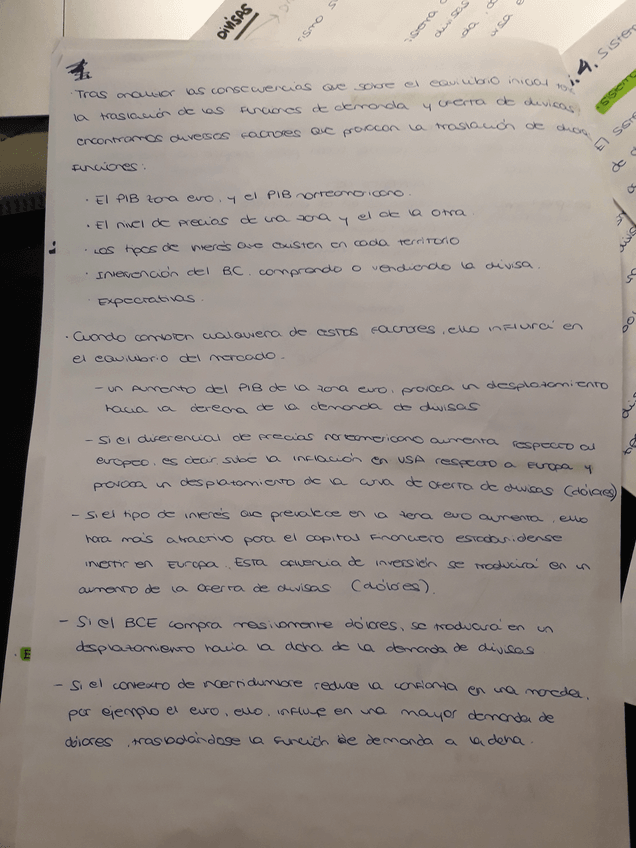 DIVISAS
1.
· Tras analizar las consecuencias que sobre el equilibrio inicial
la traslación de las funciones de demanda y oferta de divisas,
encontramos diversos factores que provocan la traslación de dichas
funciones:
· El PIB zona euro, y el PIB norteamericano.
· El nivel de precios de una zona y el de la otra.
· Los tipos de interés que existen en cada territorio
· Intervención del BC, comprando o vendiendo la divisa.
· Expectativas.
· Cuando cambien cualquiera de estos factores, ello influirá en
el equilibrio del mercado.
- un aumento del PIB de la zona euro, provoca un desplazamiento
hacia la derecha de la demanda de divisas
- Si el diferencial de precios norteamericano aumenta respecto al
europeo, es decir sube la inflación en USA respecto a Europa y
provoca un desplazamiento de la curva de oferta de divisas (dólares)
- Si el tipo de interés que prevalece en la zona euro aumenta, ello
hará más atractivo para el capital financiero estadounidense
invertir en Europa. Esta afluencia de inversión se traducirá en un
aumento de la oferta de divisas (dólares).
- Si el BCE compra masivamente dólares, se traducirá en un
desplazamiento hacia la dcha de la demanda de divisas
- Si el contexto de incertidumbre reduce la confianza en una moneda,
por ejemplo el euro, ello, influye en una mayor demanda de
dólares, trasladándose la función de demanda a la dcha.